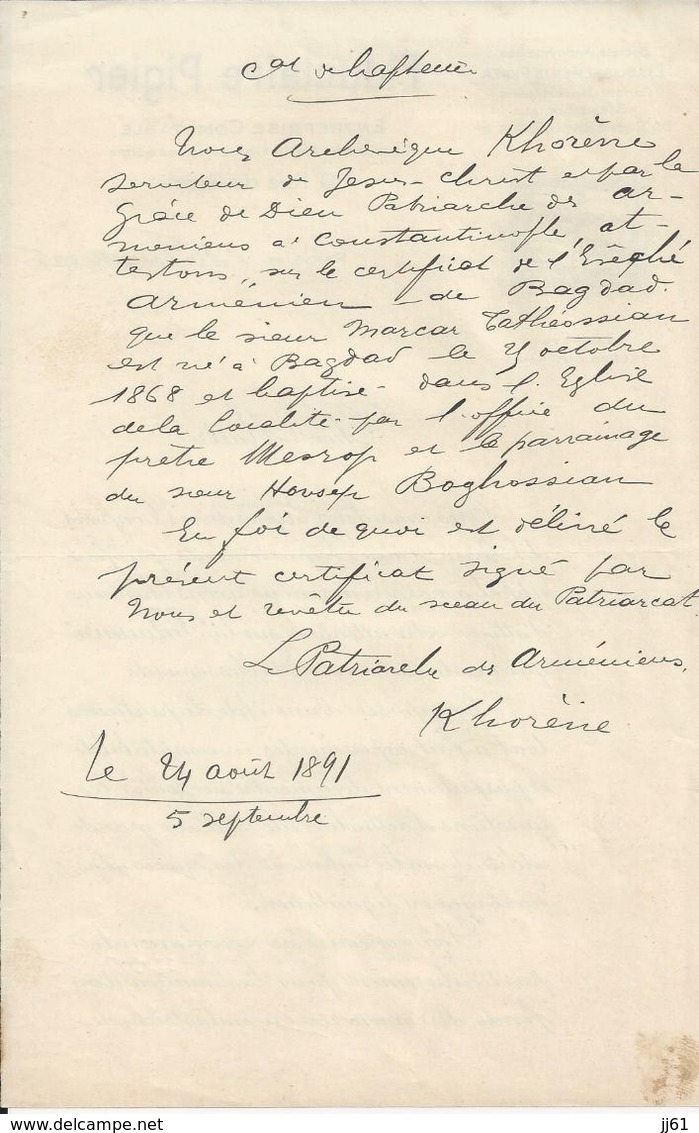 de baptême
Nous Archevêque Khorène
serviteur de Jesus-Christ et par la
Grâce de Dieu Patriarche des Ar-
meniens à Constantinople, at-
testons, sur le certificat de l'Evêché
Arménien de Bagdad.
que le sieur Marcar Tathéossian
est né à Bagdad le octobre
1868 et baptisé dans l'Eglise
de la localité par l'office du
prêtre Mesrop et le parrainage
du sieur Hovsep Boghossian
En foi de quoi est délivré le
présent certificat signé par
Nous et revêtu du sceau du Patriarcat.
Le Patriarche des Arméniens,
Khorène
Le 24 août 1891
5 septembre
jj61